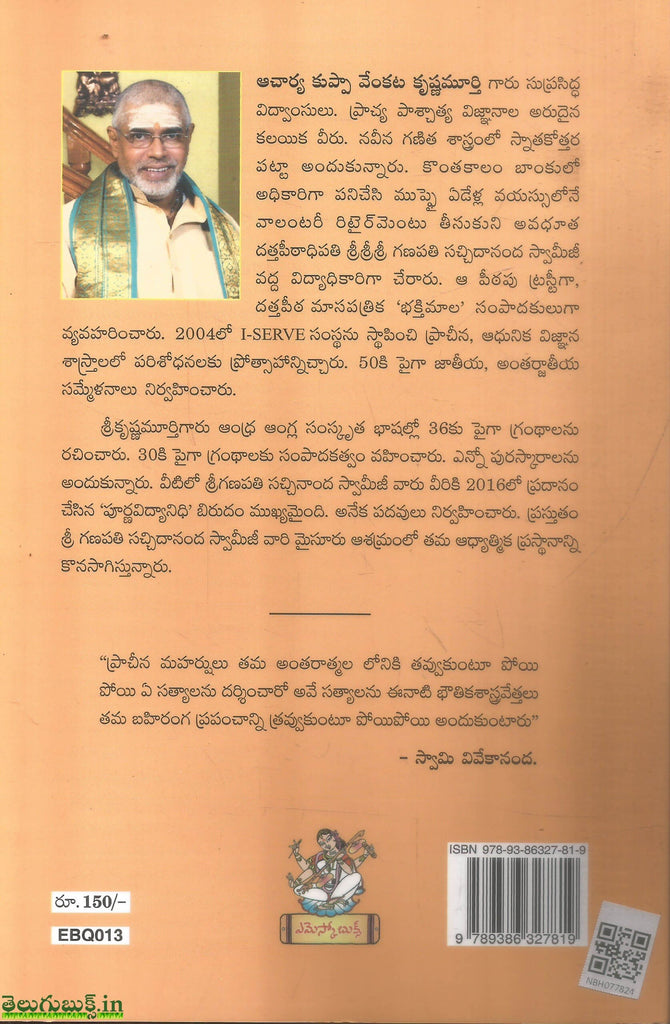 ఆచార్య కుప్పా వేంకట కృష్ణమూర్తి గారు సుప్రసిద్ధ
విద్వాంసులు. ప్రాచ్య పాశ్చాత్య విజ్ఞానాల అరుదైన
కలయిక వీరు. నవీన గణిత శాస్త్రంలో స్నాతకోత్తర
పట్టా అందుకున్నారు. కొంతకాలం బాంకులో
అధికారిగా పనిచేసి ముప్ఫై ఏడేళ్ల వయస్సులోనే
వాలంటరీ రిటైర్‌మెంటు తీసుకుని అవధూత
దత్తపీఠాధిపతి శ్రీశ్రీశ్రీ గణపతి సచ్చిదానంద స్వామీజీ
వద్ద విద్యాధికారిగా చేరారు. ఆ పీఠపు ట్రస్టీగా,
దత్తపీఠ మాసపత్రిక ‘భక్తిమాల’ సంపాదకులుగా
వ్యవహరించారు. 2004లో I-SERVE సంస్థను స్థాపించి ప్రాచీన, ఆధునిక విజ్ఞాన
శాస్త్రాలలో పరిశోధనలకు ప్రోత్సాహాన్నిచ్చారు. 50కి పైగా జాతీయ, అంతర్జాతీయ
సమ్మేళనాలు నిర్వహించారు.
శ్రీకృష్ణమూర్తిగారు ఆంధ్ర ఆంగ్ల సంస్కృత భాషల్లో 36కు పైగా గ్రంథాలను
రచించారు. 30కి పైగా గ్రంథాలకు సంపాదకత్వం వహించారు. ఎన్నో పురస్కారాలను
అందుకున్నారు. వీటిలో శ్రీగణపతి సచ్చినాంద స్వామీజీ వారు వీరికి 2016లో ప్రదానం
చేసిన ‘పూర్ణవిద్యానిధి’ బిరుదం ముఖ్యమైంది. అనేక పదవులు నిర్వహించారు. ప్రస్తుతం
శ్రీ గణపతి సచ్చిదానంద స్వామీజీ వారి మైసూరు ఆశ్రమంలో తమ ఆధ్యాత్మిక ప్రస్థానాన్ని
కొనసాగిస్తున్నారు.
“ప్రాచీన మహర్షులు తమ అంతరాత్మల లోనికి తవ్వుకుంటూ పోయి
పోయి ఏ సత్యాలను దర్శించారో అవే సత్యాలను ఈనాటి భౌతికశాస్త్రవేత్తలు
తమ బహిరంగ ప్రపంచాన్ని త్రవ్వుకుంటూ పోయిపోయి అందుకుంటారు”
- స్వామి వివేకానంద.
ISBN 978-93-86327-81-9
9 789386 327819
రూ. 150/-
EBQ013
ఎమెస్కో బుక్స్
NBH077824
తెలుగుబుక్స్.in